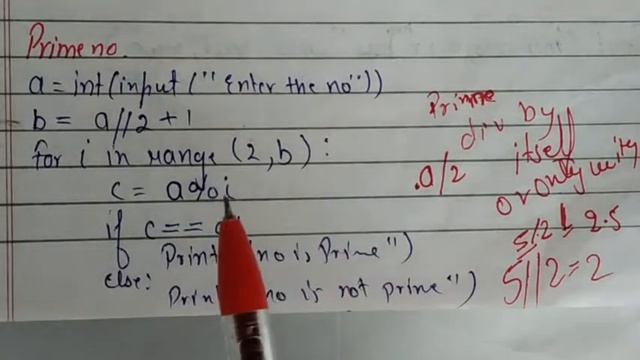 Prime no.
a = int(input ("Enter the no"))
b = a//2 + 1
for i in range (2, b) :
c = a%i
if c ==
Print no is Prime")
else:
Prin no is not prime")
Prime
div by
itself
or only unity
.a/2
5/2 2.5
5//2 = 2